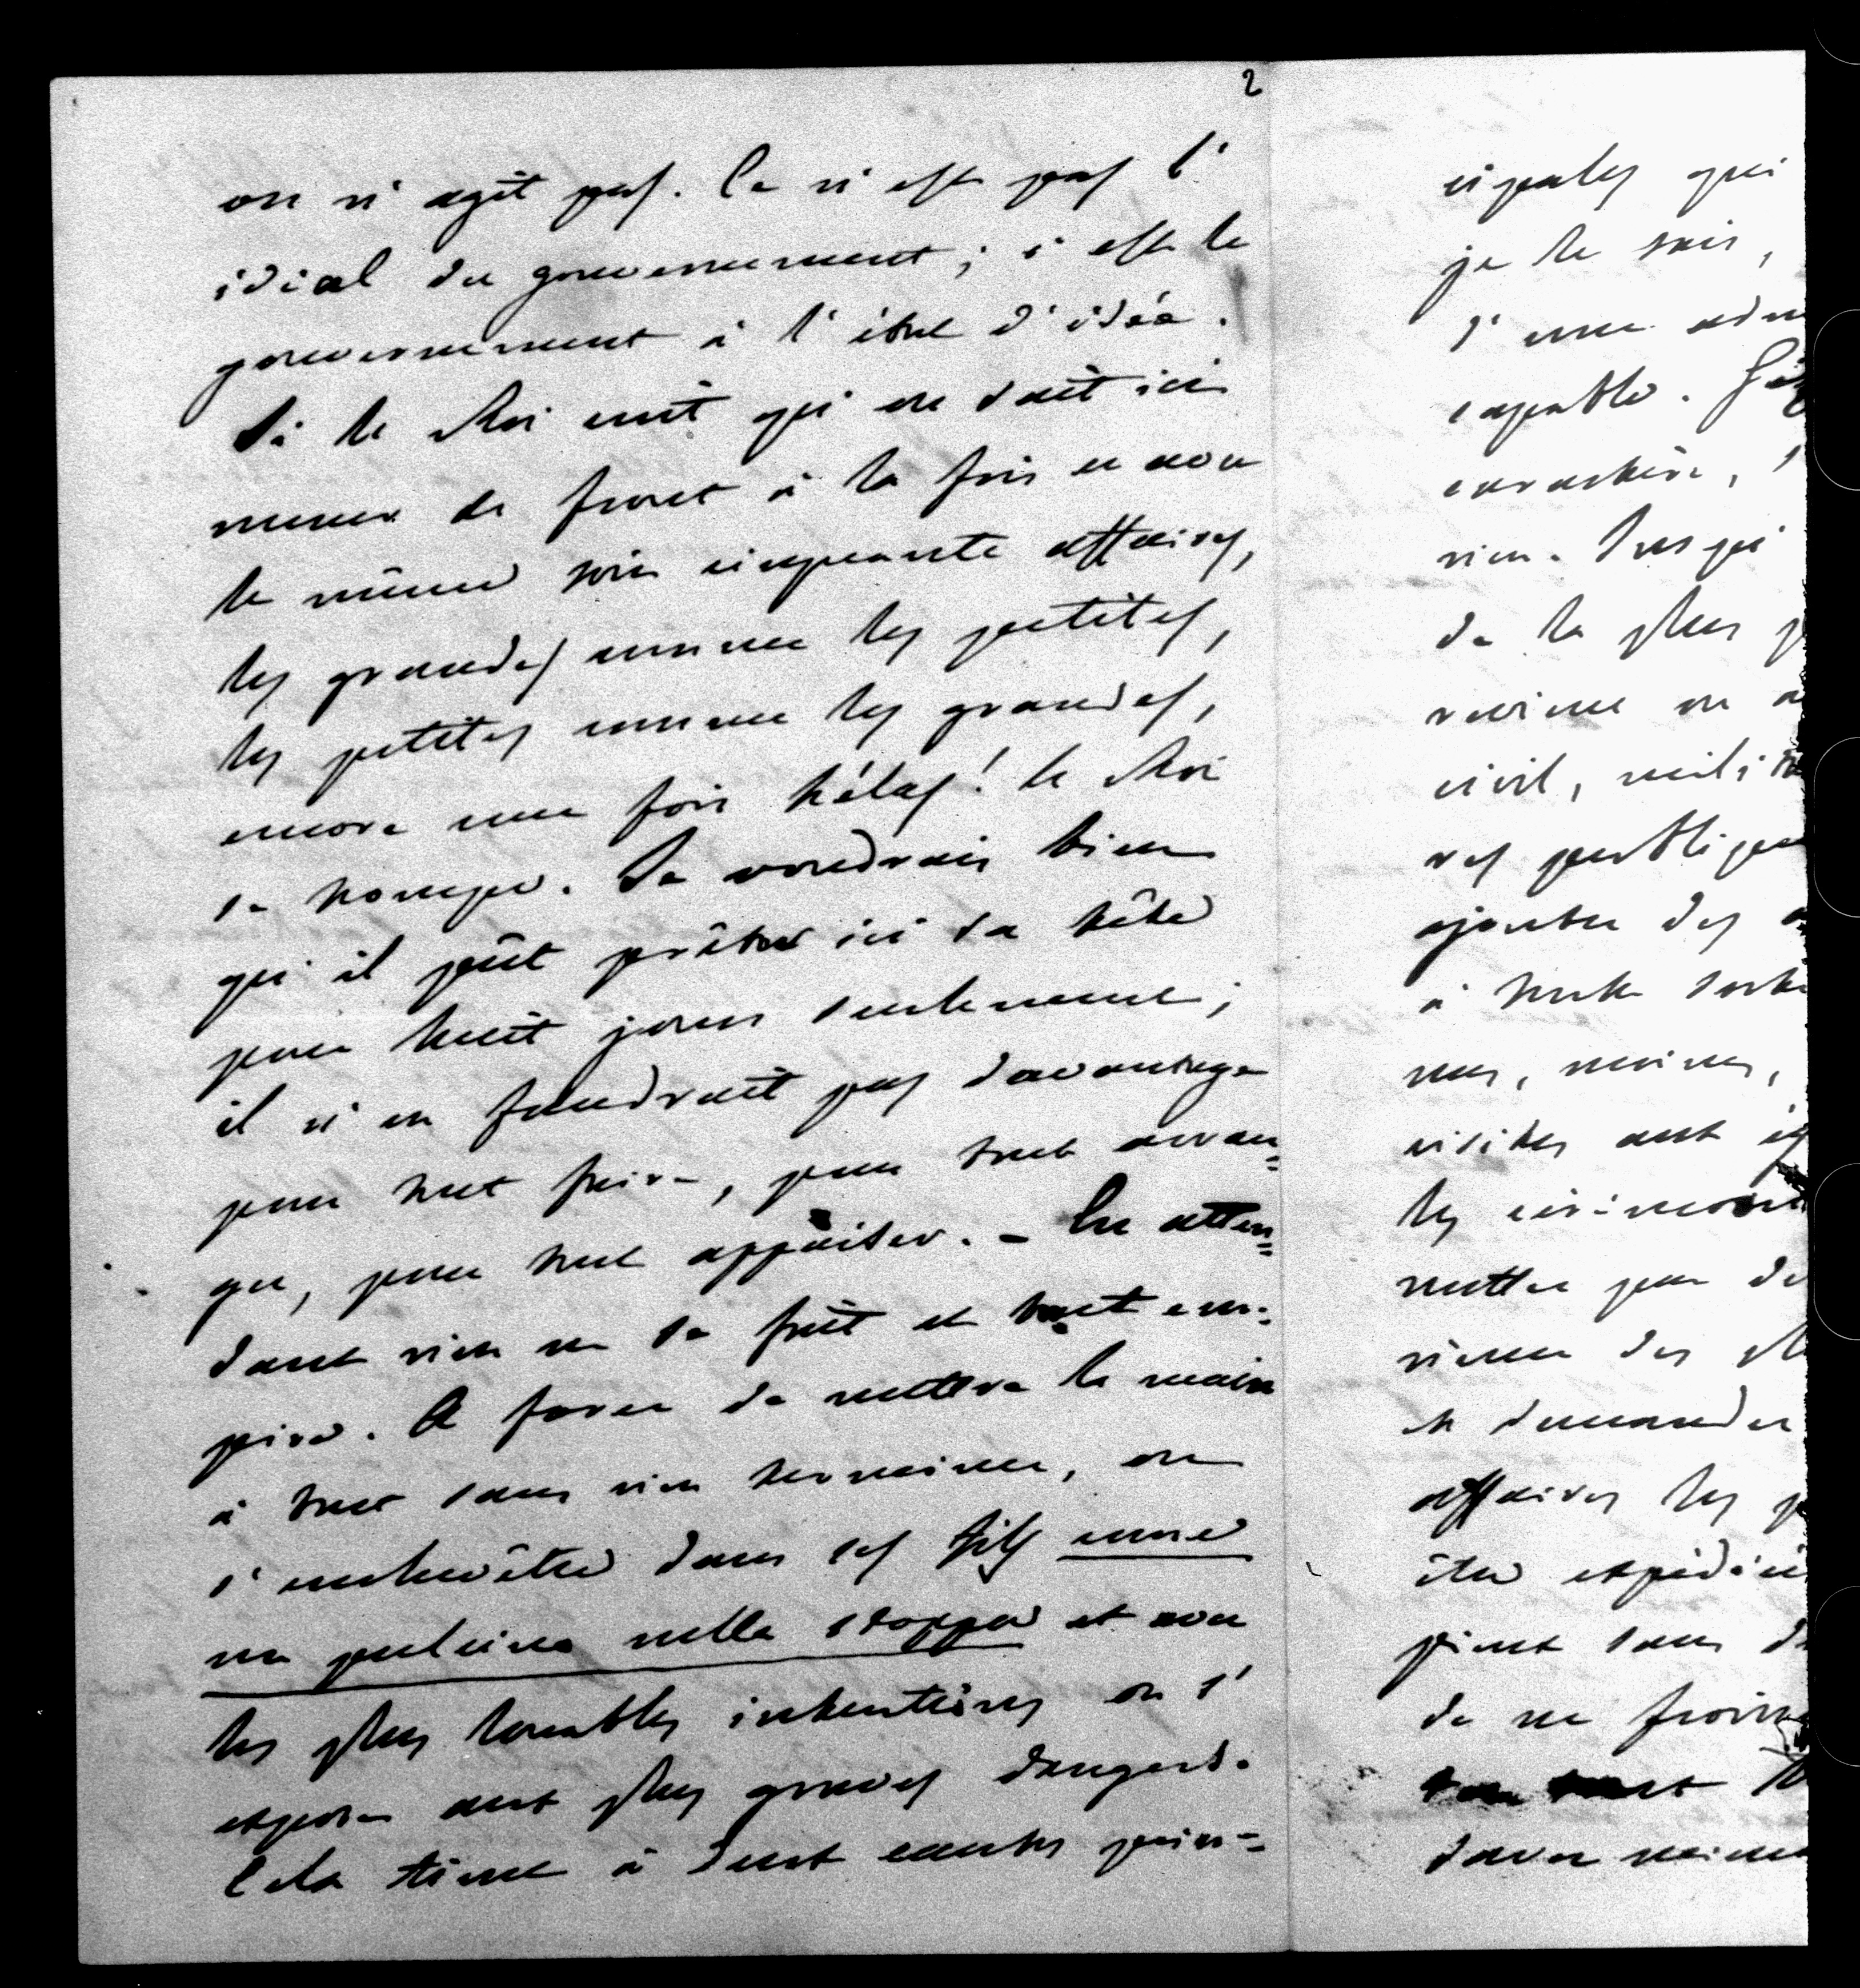 2
on n'agit pas. Ce n'est pas l'
idéal du gouvernement; c'est le
gouvernement à l'état d'idée.
Si le Roi croit qu'on sait ici
mener de front à la fois et avec
le même soin cinquante affaires,
les grandes comme les petites,
les petites comme les grandes,
encore une fois hélas! le Roi
se trompe. Je voudrais bien
qu'il pût prêter ici sa tête
pour huit jours seulement;
il n'en faudrait pas davantage
pour tout faire, pour tout arran=
ger, pour tout appaiser. - En atten=
dant rien ne se fait et tout em=
pire. A force de mettre la main
à tout sans rien terminer, on
s'enchevêtre dans ses fils come
un pulcino nella stoppa et avec
les plus louables intentions on s'
expose aux plus graves dangers.
Cela tient à deux causes prin=
cipales qui
je le sais,
d'une adm
capable.
caractère,
rien. Jusqu'
de la plus
civil, milit
res publique
ajouter des
à toute sorte
visites aux
les cérémon
mettre
et demander
affaires les
être expédié
de ne froiss